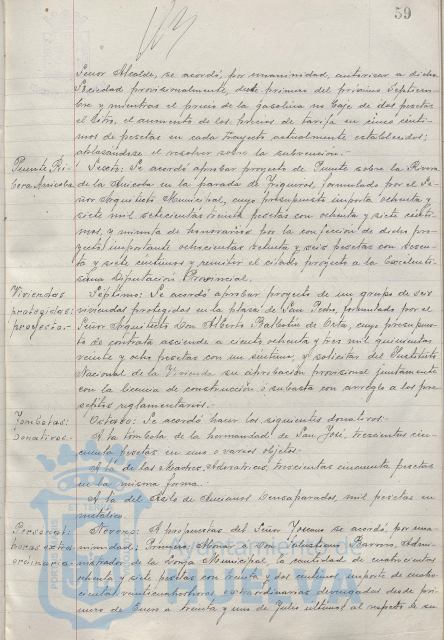 59
Señor Alcalde, se acordó, por unanimidad, autorizar a dicha
Sociedad provisionalmente, desde primero del próximo Septiem-
bre y mientras el precio de la gasolina no baje de dos pesetas
el litro, el aumento de los precios de tarifa en cinco cénti-
mos de pesetas en cada trayecto actualmente establecidos;
aplazándose el resolver sobre la subvención.-
Puente Ri-
bera Anicoba
Sexto: Se acordó aprobar proyecto de Puente sobre la Rivera
de la Anicoba en la parada de Trigueros, formulado por el Se-
ñor Arquitecto Municipal, cuyo presupuesto importa ochenta y
siete mil setecientas treinta pesetas con ochenta y siete cénti-
mos, y minuta de honorarios por la confección de dicho pro-
yecto importante ochocientas treinta y seis pesetas con sesen-
ta y siete céntimos y remitir el citado proyecto a la Excelentí-
sima Diputación Provincial.
Viviendas
protegidas:
proyecto.-
Séptimo: Se acordó aprobar proyecto de un grupo de seis
viviendas protegidas en la plaza de San Pedro, formulado por el
Señor Arquitecto Don Alberto Balbontín de Orta, cuyo presupues-
to de contrata asciende a ciento ochenta y tres mil quinientas
veinte y ocho pesetas con un céntimo, y solicitar del Instituto
Nacional de la Vivienda su aprobación provisional juntamente
con la licencia de construcción ó subasta con arreglo a los pre-
ceptos reglamentarios.-
Tómbolas:
Donativos.-
Octavo: Se acordó hacer los siguientes donativos-
A la tómbola de la hermandad de San José, trescientas cin-
cuenta pesetas en uno o varios objetos.-
A la de las Madres Adoratrices, trescientas cincuenta pesetas
en la misma forma.-
A la del Asilo de Ancianos Desamparados, mil pesetas en
metálico.
Personal:
horas extra-
ordinarias.-
Noveno: A propuestas del Señor Toscano se acordó, por una-
nimidad: Primero: Abonar a Don Celestiano Barrero, Admi-
nistrador de la Lonja Municipal, la cantidad de cuatrocientas
ochenta y siete pesetas con treinta y dos céntimos, importe de cuatro-
cientas veinticuatro horas extraordinarias devengadas desde pri-
mero de Enero a treinta y uno de Julio últimos al respecto de su
Ayuntamiento de
HUELVA